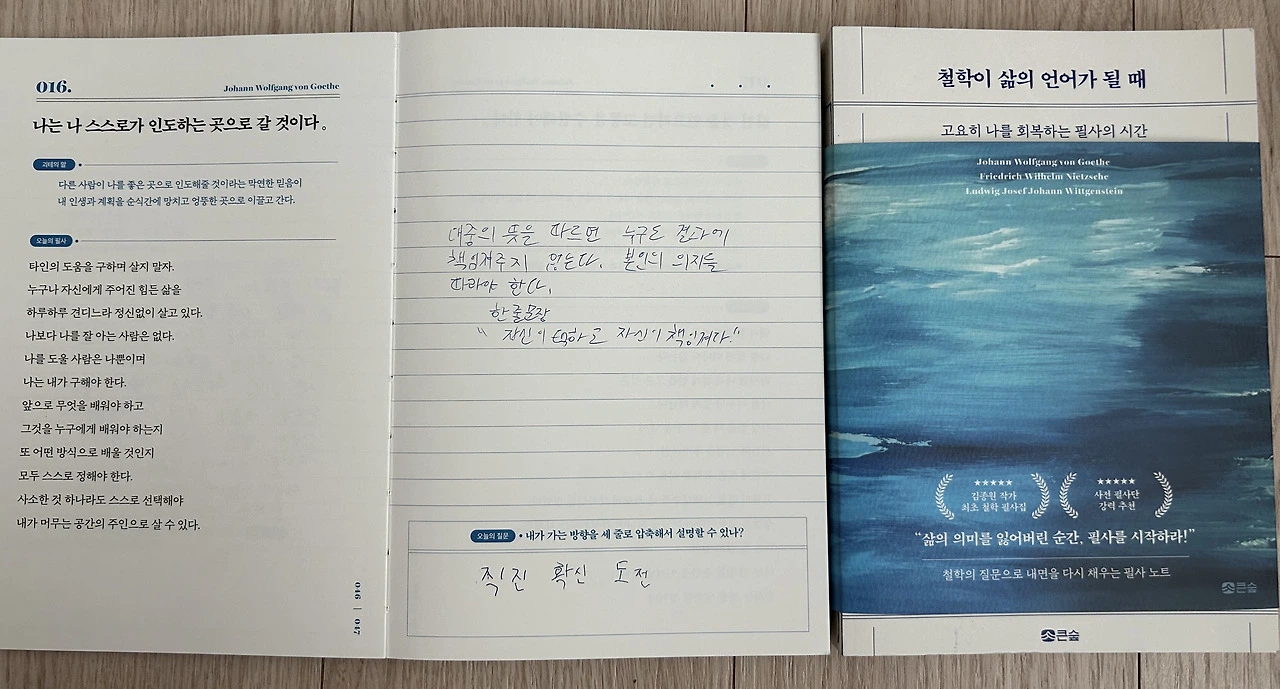 016.
Johann Wolfgang von Goethe
나는 나 스스로가 인도하는 곳으로 갈 것이다.
괴테의 말
다른 사람이 나를 좋은 곳으로 인도해줄 것이라는 막연한 믿음이
내 인생과 계획을 순식간에 망치고 엉뚱한 곳으로 이끌고 간다.
오늘의 필사
타인의 도움을 구하며 살지 말자.
누구나 자신에게 주어진 힘든 삶을
하루하루 견디느라 정신없이 살고 있다.
나보다 나를 잘 아는 사람은 없다.
나를 도울 사람은 나뿐이며
나는 내가 구해야 한다.
앞으로 무엇을 배워야 하고
그것을 누구에게 배워야 하는지
또 어떤 방식으로 배울 것인지
모두 스스로 정해야 한다.
사소한 것 하나라도 스스로 선택해야
내가 머무는 공간의 주인으로 살 수 있다.
046 | 047
대중의 뜻을 따르면 누구도 결과에
책임져주지 않는다. 본인의 의지를
따라야 한다.
한줄문장
"자신이 택하고 자신이 책임져라."
오늘의 질문 • 내가 가는 방향을 세 줄로 압축해서 설명할 수 있나?
직진 확신 도전
철학이 삶의 언어가 될 때
고요히 나를 회복하는 필사의 시간
Johann Wolfgang von Goethe
Friedrich Wilhelm Nietzsche
Ludwig Josef Johann Wittgenstein
★★★★★
김종원 작가
최초 철학 필사집
★★★★★
사전 필사단
강력 추천
“삶의 의미를 잃어버린 순간, 필사를 시작하라!”
철학의 질문으로 내면을 다시 채우는 필사 노트
큰숲
큰숲